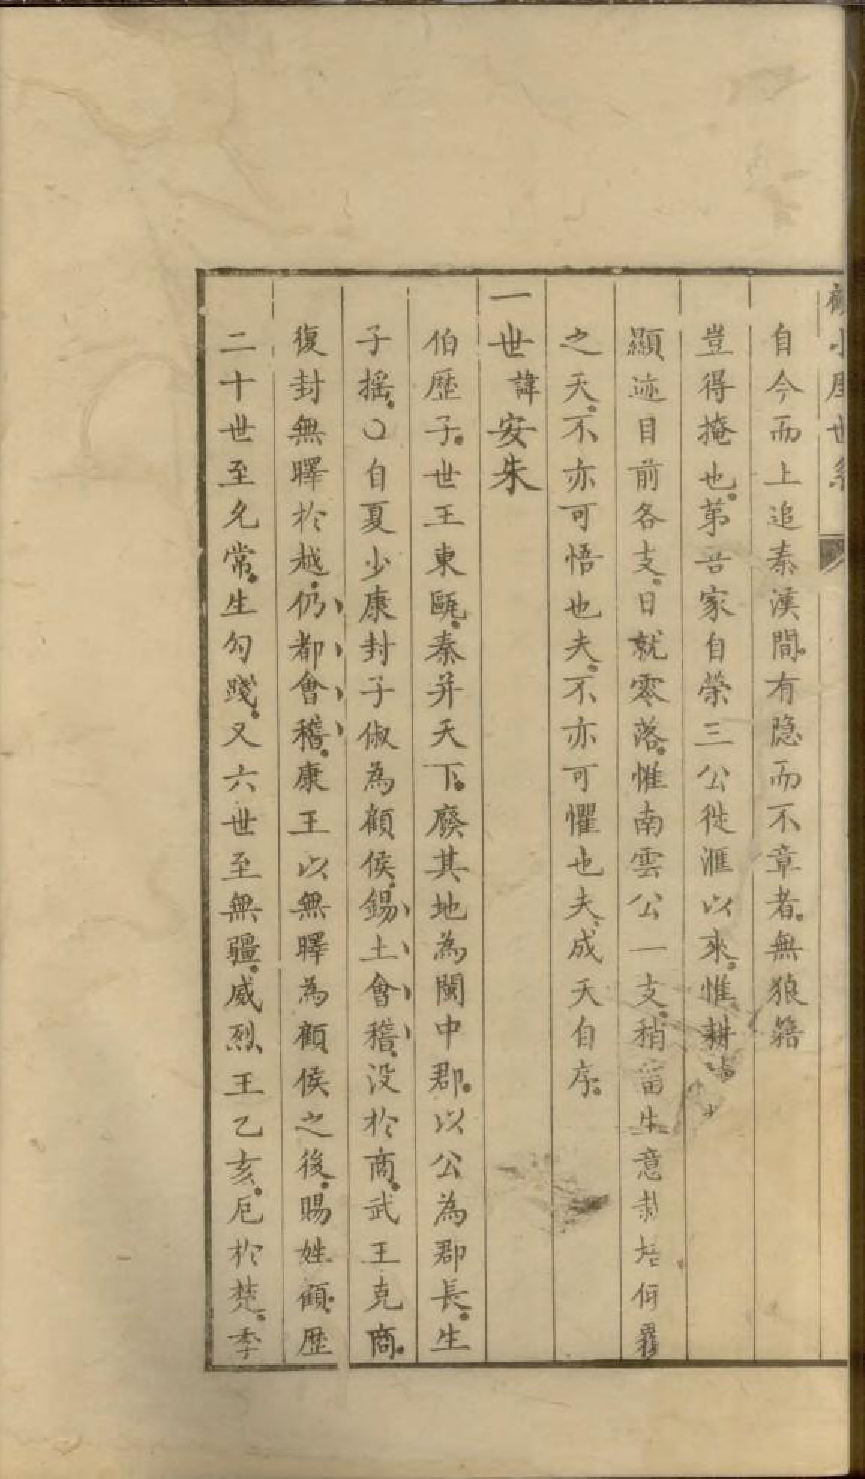 小屋世系
自今而上追秦漢間。有隐而不章者。無狼籍
豈得掩也。苐吾家自榮三公徙滙以來。惟耕
顯迹目前各支。日就零落。惟南雲公一支。稍留生意栽培何
之天。不亦可悟也夫。不亦可懼也夫。成天自序。
一世諱安朱
伯歷子。世王東甌。秦并天下。廢其地為閩中郡。以公為郡長。生
子摇。〇自夏少康封子俶為顧侯。錫土會稽。没於商。武王克商。
復封無曎於越。仍都會稽。康王以無曎為顧侯之後。賜姓顧。歴
二十世至允常。生勾踐。又六世至無疆。威烈王乙亥。厄於楚。季